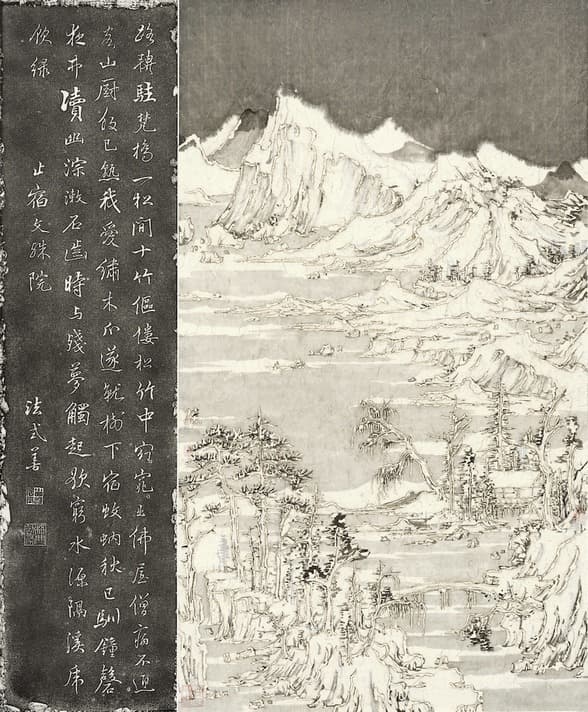 路轉駐梵橋一松間十竹傴僂松竹中窈窕出佛屋僧病不迎
客山厨飯已熟我愛繡木瓜遂就樹下宿蚊蚋秋已馴鐘磬
夜弗瀆幽淙漱石齒時与殘夢觸起欲窮水源隔溪
飲綠 止宿文殊院 法式善